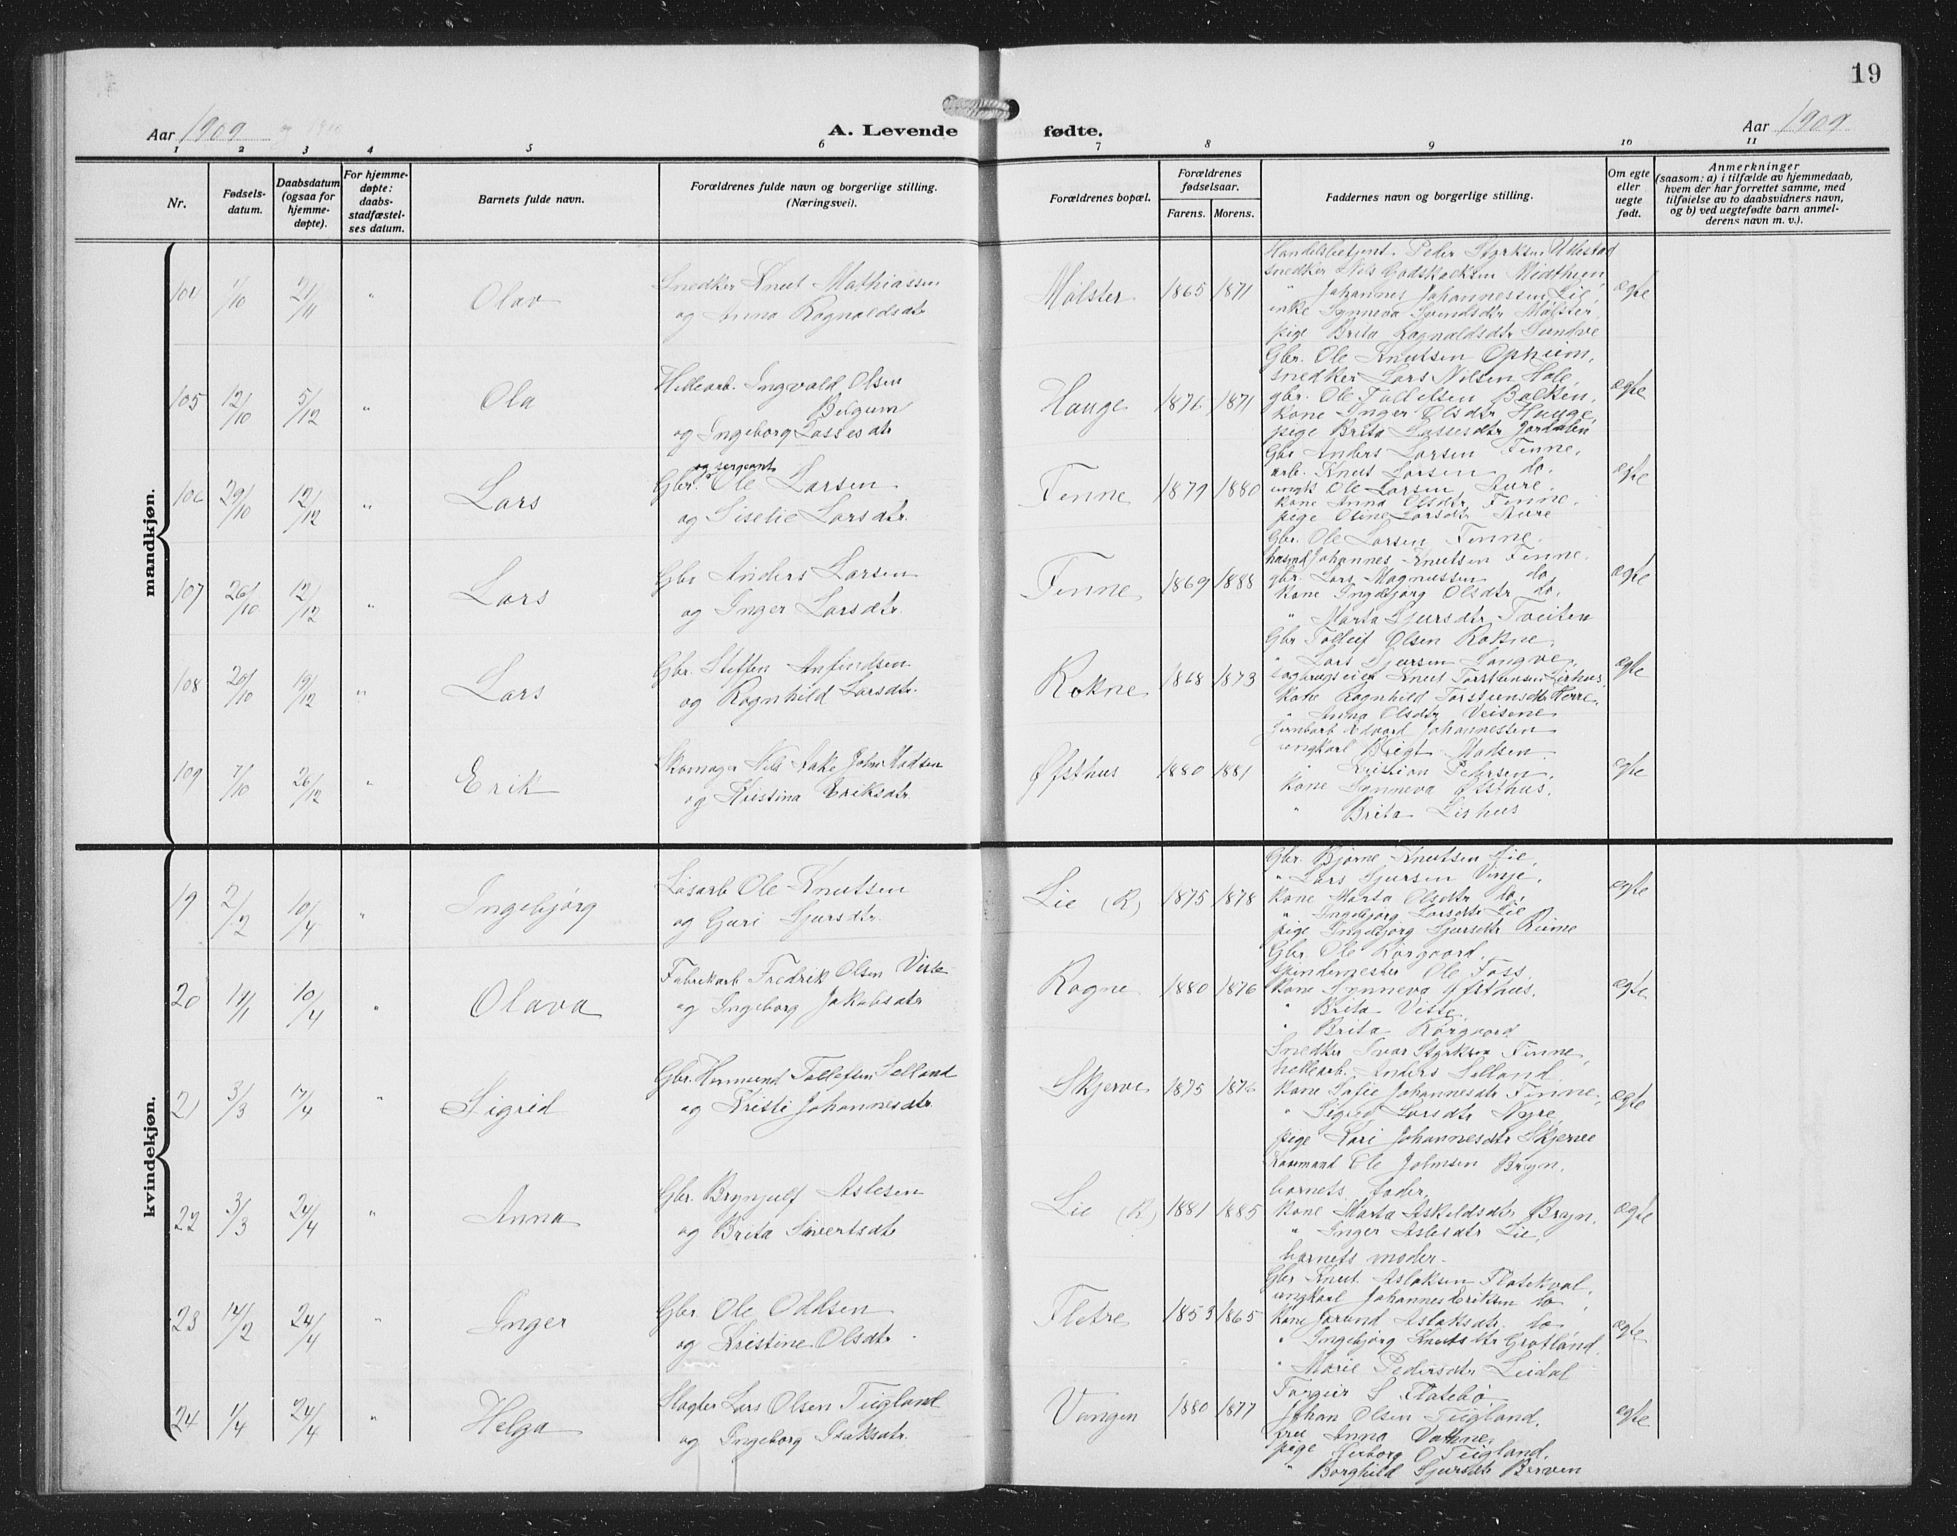 19
Aar 1909
A. Levende fødte.
Aar 1909
1 2 3 4 5 6 7 8 9 10 11
Nr.
Fødsels-
datum.
Daabsdatum
(ogsaa for
hjemme-
døpte).
For hjemme-
døpte:
daabs-
stadfæstel-
ses datum.
Barnets fulde navn.
Forældrenes fulde navn og borgerlige stilling.
(Næringsvei).
Forældrenes bopæl.
Forældrenes
fødselsaar.
Farens. Morens.
Faddernes navn og borgerlige stilling.
Om egte
eller
uegte
født.
Anmerkninger
(saasom: a) i tilfælde av hjemmedaab,
hvem der har forrettet samme, med
tilføielse av to daabsvidners navn,
og b) ved uegtefødte barn anmel-
derens navn m. v.).
mandkjøn.
104 1/10 21/11 " Olav
Snedker Knut Mathiassen
og Anna Ragnaldsdtr
Mølster 1865 1871
Handelsbetjent Peder Styrksen
snedker Nils Godskalksen
" Johannes Johannessen Lie,
Synneva Svendsdtr Mølster,
pige Brita Ragnaldsdtr
ægte
105 12/10 5/12 " Ola
Ingvald Olsen
og Ingeborg Lassesdtr
Hauge 1876 1871
Gbr. Ole Knutsen Opheim,
snedker Lars Nilsen Hole,
gbr. Ole Balken,
kone Inger Olsdtr Hauge,
pige Brita Lassesdtr Jordalen
ægte
106 29/10 12/12 " Lars
og sergeant
Gbr. Ole Larsen
og Siselie Larsdtr.
Finne 1879 1880
Gbr Anders Larsen Finne,
arb. Knut Larsen do.
ungk Ole Larsen Aure.
kone Anna Olsdtr Finne.
pige Oline Larsdtr Aure
ægte
107 26/10 12/12 " Lars
Gbr Anders Larsen
og Inger Larsdtr.
Finne 1869 1888
Gbr. Ole Larsen Finne.
Johannes Knutsen Finne.
gbr. Lars Magnussen do
kone Ingebjørg Olsdtr do.
" Marta Sjursdtr Tveiten
ægte
108 20/10 19/12 " Lars
Gbr. Steffen Anfindsen
og Ragnhild Larsdtr.
Rokne 1868 1873
Gbr Tolleif Olsen Rokne,
" Lars Sjursen
Knut Torsteinsen Lirhus,
kone Ragnhild Torsteinsdtr Herre,
" Anna Olsdtr
ægte
109 7/10 26/12 " Erik
Skomager Nils John Madsen
og Kristina Eriksdtr
Øfsthus 1880 1881
Edvard Johannessen
ungkarl Madsen
" Kristian Pedersen,
kone Synneva Øfsthus,
" Brita
ægte
kvindekjøn.
19 2/2 10/4 " Ingebjørg
Løsarb Ole Knutsen
og Guri Sjursdtr.
Lie (R) 1875 1878
Gbr. Bjørne Knutsen Lie,
" Lars Sjursen Vinje,
kone Marta Olsdtr do,
" Ingebjørg Larsdtr Lie
pige Ingebjørg Sjursdtr Rieme
ægte
20 14/1 10/4 " Olava
Fabrikarb Fredrik Olsen Viste
og Ingeborg Jakobsdtr
Rogne 1880 1876
Gbr Ole Rørgaard,
spindemester Ole Foss,
kone Synneva Øfsthus,
" Brita Viste,
" Brita Rørgaard
ægte
21 3/3 17/4 " Sigrid
Gbr. Hermund Tollefsen Selland
og Kristi Johannesdtr.
Skjerve 1875 1876
Snedker Ivar Styrksen Finne,
hellearb. Anders Selland
kone Sofie Johannesdtr Finne,
" Sigrid Larsdtr Nyre,
pige Kari Johannesdtr Skjerve
ægte
22 3/3 24/4 " Anna
Gbr. Brynjulf Aslesen
og Brita Sivertsdtr
Lie (R) 1881 1885
Ole Johnsen Bryn,
barnets fader,
kone Marta Askildsdtr Bryn,
" Inger Aslesdtr Lie,
barnets moder.
ægte
23 14/2 24/4 " Inger
Gbr Ole Oddsen
og Kristine Olsdtr.
Fletre 1853 1865
Gbr Knut Aslaksen Flatekval,
ungkarl Johannes Eriksen do,
kone Jorund Aslaksdtr do
" Ingebjørg Knutsdtr Grotland,
" Marie Pedersdtr Leidal
ægte
24 1/4 24/4 " Helga
Slagter Lars Olsen Tugland
og Ingeborg Isaksdtr.
Vangen 1880 1877
Torgeir S. Flatebø
Johan Olsen Tugland,
fru Anna
pige Herborg O Tugland,
" Borghild Sjursdtr Berven
ægte